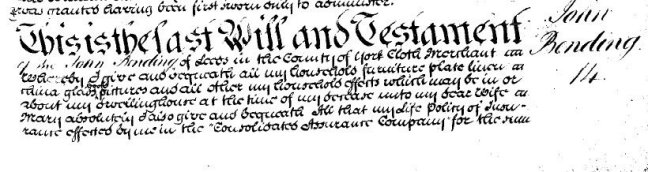 was granted having been first sworn only to administer.
This is the last Will and Testament
of me John Bending of Leeds in the County of York Cloth Merchant
Whereby I give and bequeath all my household furniture plate linen
china glass pictures and all other my household effects which may be in or
about my dwellinghouse at the time of my decease unto my dear Wife
Mary absolutely I also give and bequeath All that my Life Policy of Insu-
rance effected by me in the "Consolidated Assurance Company" for the sum
John
Bending
14.